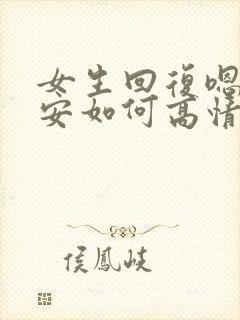 女生回復嗯
安如何高情
侯鳳岐